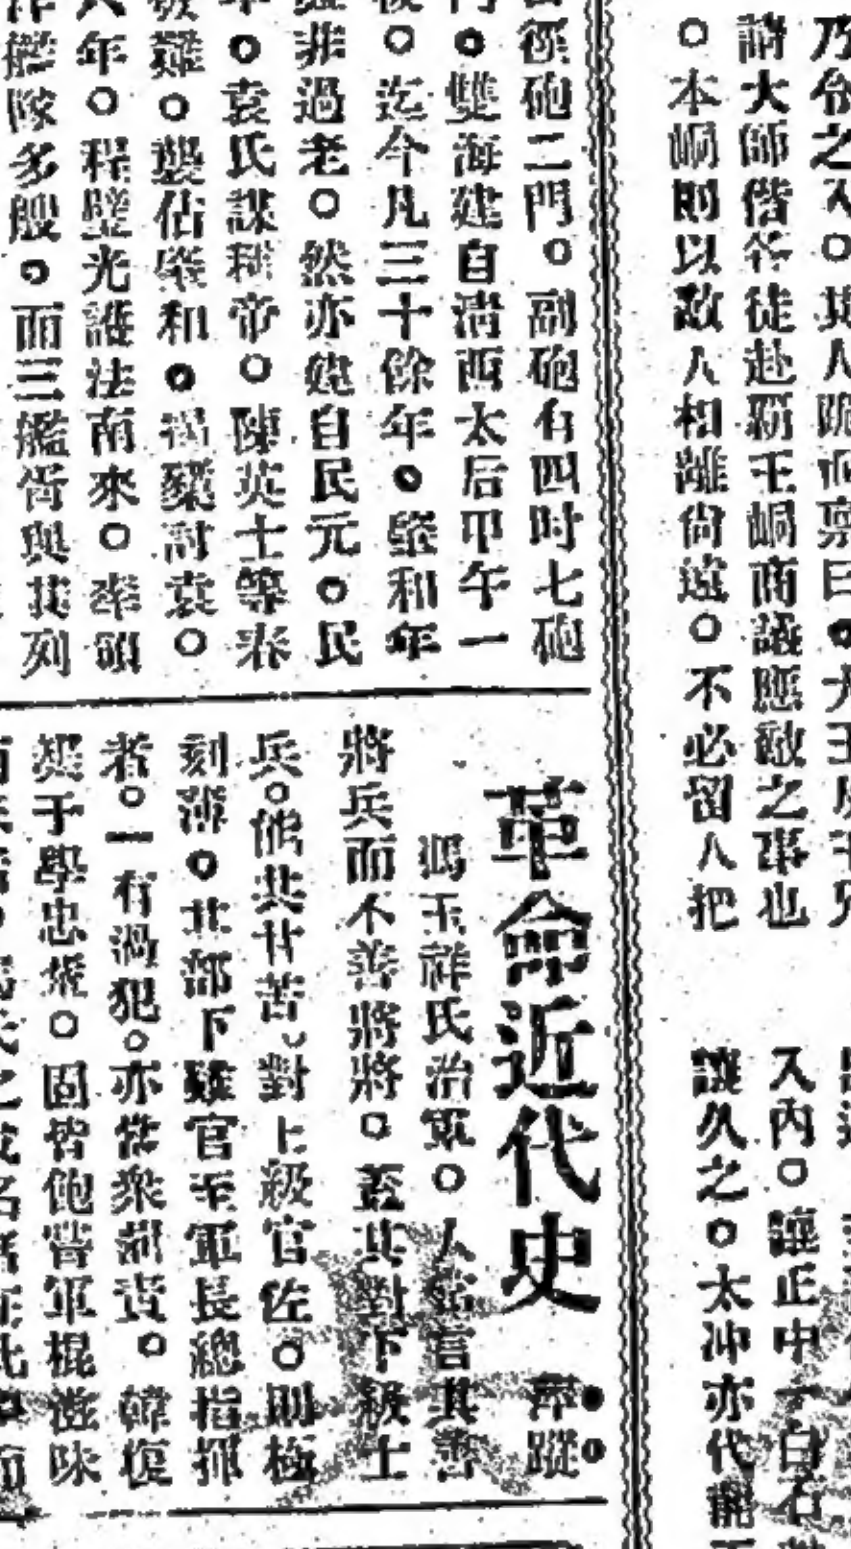 乃令之入。其人跪而稟曰。大王
請大師偕各徒赴霸王峒商議應敵之事也
。本峒則以敵人相離尙遠。不必留人把
入內。讓正中一白石
讓久之。太冲亦代
徑砲二門。副砲有四吋七砲
門。雙海建自淸西太后甲午一
。迄今凡三十餘年。肇和年
非過老。然亦建自民元。民
年。袁氏謀稱帝。陳英士等春
發難。襲佔肇和。倡義討袁。
六年。程璧光護法南來。率領
艦隊多艘。而三艦胥與其列
革命近代史
萍蹤
馮玉祥氏治軍。人嘗言其善
將兵而不善將將。蓋其對下級士
兵。能共甘苦。對上級官佐。則極
刻薄。其部下雖官至軍長總指揮
者。一有過犯。亦當衆罰責。韓復
榘于學忠輩。固皆飽嘗軍棍滋味